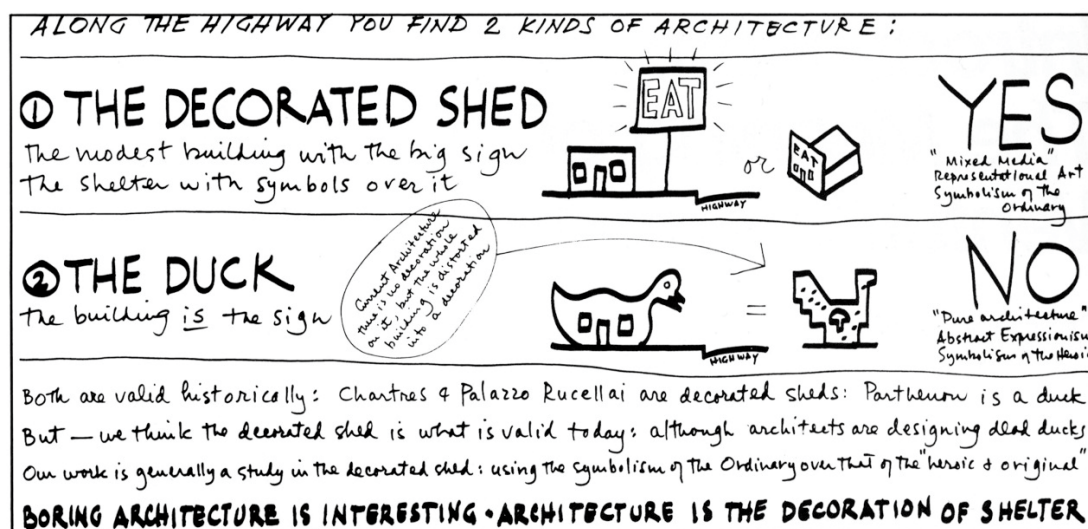 ALONG THE HIGHWAY YOU FIND 2 KINDS OF ARCHITECTURE:
① THE DECORATED SHED
The modest building with the big sign
The shelter with symbols over it
EAT
HIGHWAY
or
EAT
YES
"Mixed Media"
Representational Art
Symbolism of the
Ordinary
② THE DUCK
The building is the sign
Current Architecture
there is no decoration
on it, but the whole
building is distorted
into a decoration
HIGHWAY
=
NO
"Pure architecture"
Abstract Expressionism
Symbolism of the Heroic
Both are valid historically: Chartres & Palazzo Rucellai are decorated sheds: Parthenon is a duck
But — we think the decorated shed is what is valid today: although architects are designing dead ducks
Our work is generally a study in the decorated shed: using the symbolism of the Ordinary over that of the "heroic & original"
BORING ARCHITECTURE IS INTERESTING • ARCHITECTURE IS THE DECORATION OF SHELTER